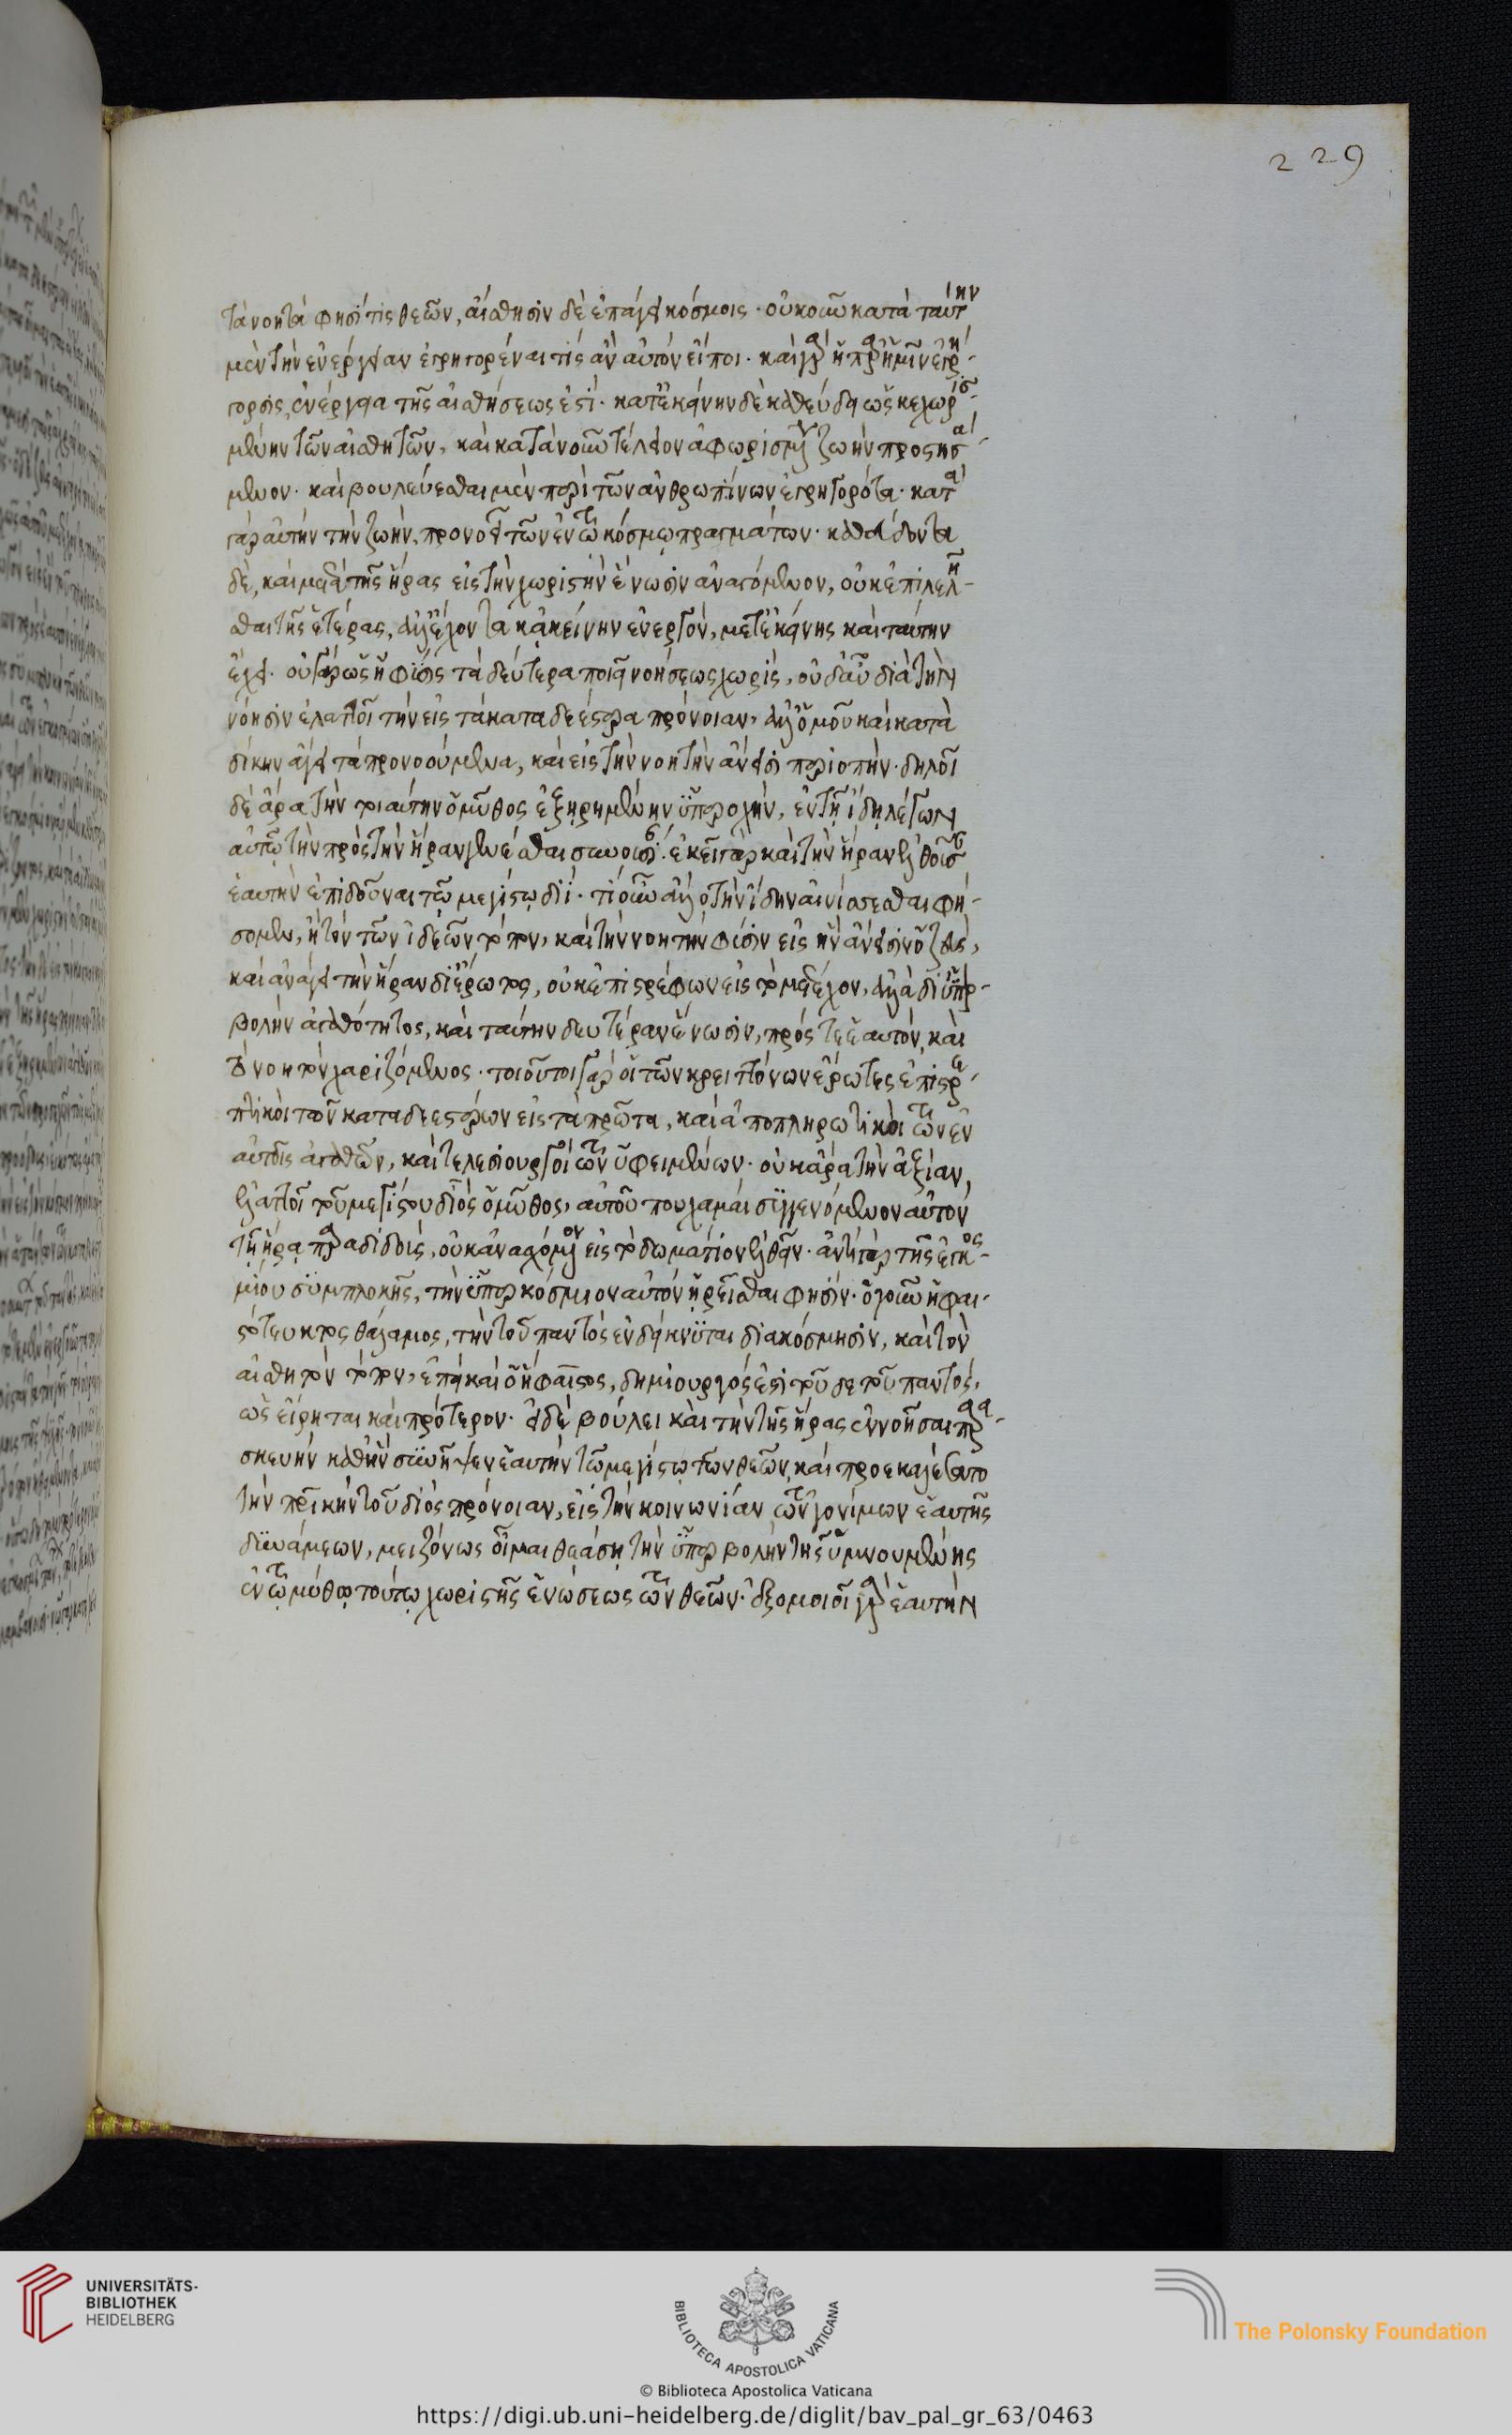 229
τὰ νοητά φησί τις θεῶν, αἴσθησιν δὲ ἐπάγει κόσμοις· οὐκοῦν κατὰ ταύτην
μὲν τὴν ἐνέργειαν ἐγρηγορέναι τίς ἂν αὐτὸν εἴποι· καὶ γὰρ ἡ παρ' ἡμῖν ἐγρή-
γορσις, ἐνέργεια τῆς αἰσθήσεως ἐστί· κατ' ἐκείνην δὲ καθεύδει ὡς κεχωρισ-
μένην τῶν αἰσθητῶν, καὶ κατὰ νοῦν τέλειον ἀφωρισμένην ζωὴν προστησά-
μενον· καὶ βουλεύεσθαι μὲν περὶ τῶν ἀνθρωπίνων ἐγρηγορότα· κατὰ
γὰρ αὐτὴν τὴν ζωὴν, προνοεῖ τῶν ἐν τῷ κόσμῳ πραγμάτων· καθεύδοντα
δὲ, καὶ μετὰ τῆς ἥρας εἰς τὴν χωριστὴν ἕνωσιν ἀναγόμενον, οὐκ ἐπιλελῆ-
σθαι τῆς ἑτέρας, ἀλλ' ἔχοντα κἀκείνην ἐνεργὸν, μετ' ἐκείνης καὶ ταύτην
ἔχει· οὐ γὰρ ὡς ἡ φύσις τὰ δεύτερα ποιεῖ νοήσεως χωρὶς, οὐδ' αὖ διὰ τὴν
νόησιν ἐλαττοῖ τὴν εἰς τὰ καταδεέστερα πρόνοιαν, ἀλλ' ὁμοῦ καὶ κατὰ
δίκην ἄγει τὰ προνοούμενα, καὶ εἰς τὴν νοητὴν ἄνεισι περιοπήν· δηλοῖ
δὲ ἄρα τὴν τοιαύτην ὁ μῦθος ἐξῃρημένην ὑπεροχὴν, ἐν τῇ ἴδῃ λέγων
αὐτῷ τὴν πρὸς τὴν ἥραν γενέσθαι συνουσίαν· ἐκεῖ γὰρ καὶ τὴν ἥραν ἐλθοῦσαν
ἑαυτὴν ἐπιδοῦναι τῷ μεγίστῳ διί· τί οὖν ἄλλο τὴν ἴδην αἰνίσσεσθαι φή-
σομεν, ἢ τὸν τῶν ἰδεῶν τόπον, καὶ τὴν νοητὴν φύσιν εἰς ἣν ἄνεισιν ὁ ζεὺς,
καὶ ἀνάγει τὴν ἥραν δι' ἔρωτος, οὐκ ἐπιστρέφων εἰς τὸ μετέχον, ἀλλὰ δι' ὑπερ-
βολὴν ἀγαθότητος, καὶ ταύτην δευτέραν ἕνωσιν, πρός τε ἑαυτὸν, καὶ
τὸ νοητὸν χαριζόμενος· τοιοῦτοι γὰρ οἱ τῶν κρειττόνων ἔρωτες ἐπιστρε-
πτικοὶ τῶν καταδεεστέρων εἰς τὰ πρῶτα, καὶ ἀποπληρωτικοὶ τῶν ἐν
αὐτοῖς ἀγαθῶν, καὶ τελεσιουργοὶ τῶν ὑφειμένων· οὐκ ἄρα τὴν ἀξίαν,
ἐλαττοῖ τοῦ μεγίστου διὸς ὁ μῦθος, αὐτοῦ που χαμαὶ συγγενόμενον αὐτὸν
τῇ ἥρᾳ παραδιδοὺς, οὐκ ἀνασχόμενον εἰς τὸ δωμάτιον ἐλθεῖν· ἀντὶ γὰρ τῆς ἐγκοσ-
μίου συμπλοκῆς, τὴν ὑπερκόσμιον αὐτὸν ᾑρεῖσθαι φησίν· ὁ γοῦν ἡφαι-
στότευκτος θάλαμος, τὴν τοῦ παντὸς ἐνδείκνυται διακόσμησιν, καὶ τὸν
αἰσθητὸν τόπον, ἐπεὶ καὶ ὁ ἥφαιστος, δημιουργός ἐστι τοῦδε τοῦ παντός,
ὡς εἴρηται καὶ πρότερον· εἰ δὲ βούλει καὶ τὴν τῆς ἥρας ἐννοῆσαι παρα-
σκευὴν καθ' ἣν συνῆψεν ἑαυτὴν τῷ μεγίστῳ τῶν θεῶν, καὶ προεκαλέσατο
τὴν πατρικὴν τοῦ διὸς πρόνοιαν, εἰς τὴν κοινωνίαν τῶν γονίμων ἑαυτῆς
δυνάμεων, μειζόνως οἶμαι θεάσῃ τὴν ὑπερβολὴν τῆς ὑμνουμένης
ἐν τῷ μύθῳ τούτῳ χωριστῆς ἑνώσεως τῶν θεῶν· ἐξομοιοῖ γὰρ ἑαυτὴν
UNIVERSITÄTS-
BIBLIOTHEK
HEIDELBERG
BIBLIOTECA APOSTOLICA VATICANA
The Polonsky Foundation
© Biblioteca Apostolica Vaticana
https://digi.ub.uni-heidelberg.de/diglit/bav_pal_gr_63/0463